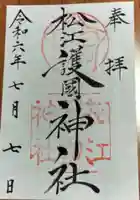 奉拝
松江護國神社
令和六年七月七日